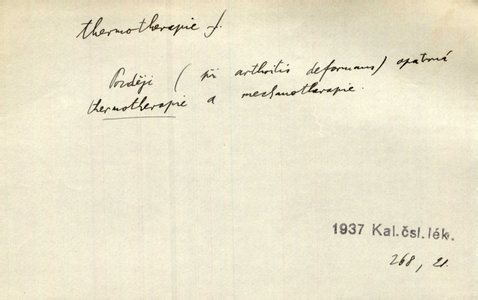 thermotherapie f.
Později (při arthritis deformans) opatrná
thermotherapie a mechanotherapie.
1937 Kal.čsl.lék.
268, 21.